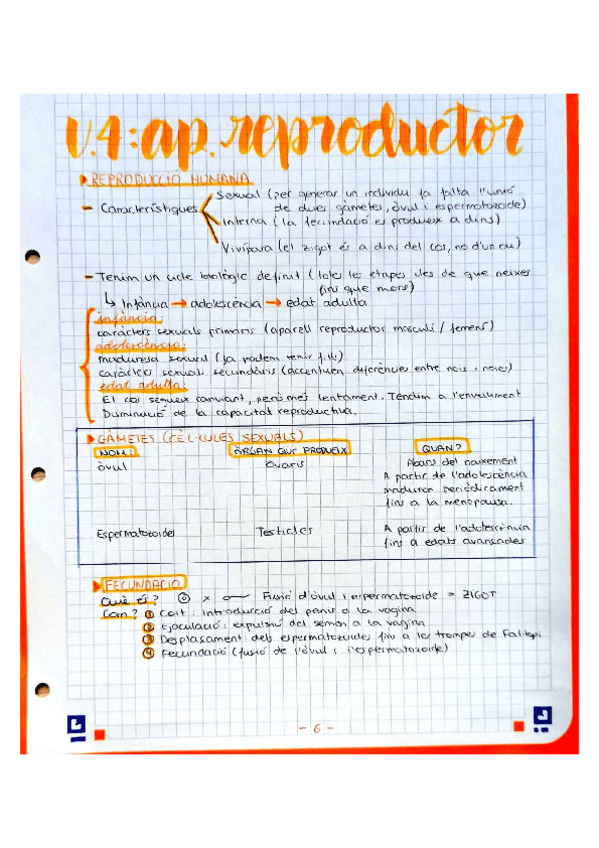 V.4: ap. reproductor
REPRODUCCIÓ HUMANA
Sexual (per generar un individu fa falta l'unió
de dues gàmetes, òvul i espermatozoide)
- Característiques
Interna (la fecundació es produeix a dins)
Vivípara (el zigot és a dins del cos, no d'un ou)
- Tenim un cicle biològic definit (totes les etapes des de que neixes
fins que mors)
Infància → adolescència → edat adulta
infància:
caràcters sexuals primaris (aparell reproductor masculí / femení)
adolescència:
maduresa sexual (ja podem tenir fills)
caràcters sexuals secundaris (accentuen diferències entre nois i noies)
edat adulta:
El cos segueix canviant, però més lentament. Tendim a l'envelliment
Disminució de la capacitat reproductiva.
GÀMETES (CÈL·LULES SEXUALS)
NOM: ÒRGAN QUE PRODUEIX QUAN?
òvul Ovaris Abans del naixement
A partir de l'adolescència
maduren periòdicament
fins a la menopausa.
Espermatozoides Testicles A partir de l'adolescència
fins a edats avançades
FECUNDACIÓ
Què és? x Fusió d'òvul i espermatozoide = ZIGOT
Com? 1 Coit: introducció del penis a la vagina
2 Ejaculació: expulsió del semen a la vagina
3 Desplaçament: dels espermatozoides fins a les trompes de Fal·lopi
4 Fecundació (fusió de l'òvul i l'espermatozoide)
- 6 -